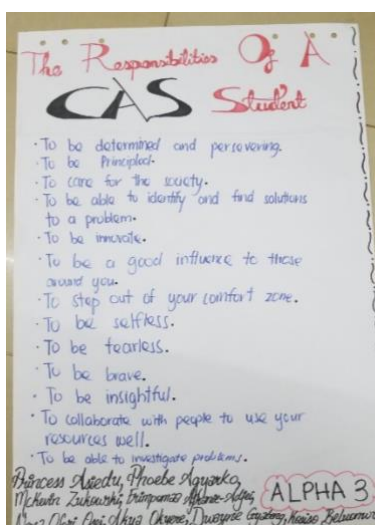 The Responsibilities Of A
CAS Student
· To be determined and persevering.
· To be Principled.
· To care for the society.
· To be able to identify and find solutions
to a problem.
· To be innovate.
· To be a good influence to those
around you.
· To step out of your comfort zone.
· To be selfless.
· To be fearless.
· To be brave.
· To be insightful.
· To collaborate with people to use your
resources well.
· To be able to investigate problems.
Princess Asiedu, Phoebe Agyarko,
McKevin Zukowski,
ALPHA 3
Akua Okyere, Dwayne